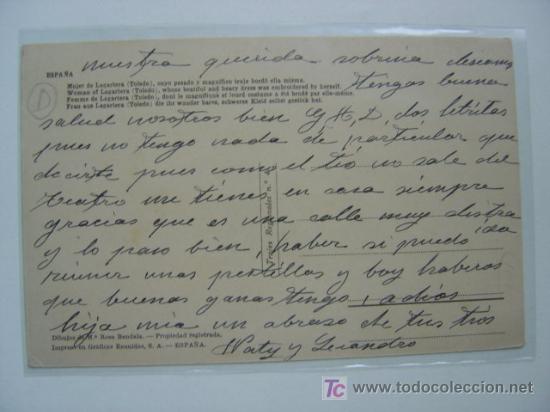 nuestra querida sobrina deseamos
ESPAÑA
Mujer de Lagartera (Toledo), cuyo pesado y magnífico traje bordó ella misma.
Woman of Lagartera (Toledo), whose beatiful and heavy dress was embroidered by herself.
Femme de Lagartera (Toledo), dont le magnifique et lourd costume a été brodé par elle-même.
Frau aus Lagartera (Toledo), die ihr wunder bares, schweres Kleid selber gestick hat.
D
tengas buena
salud nosotros bien G.A.D. dos letritas
pues no tengo nada de particular que
decirte pues como el tio no sale del
teatro me tienes en casa siempre
gracias que es una calle muy distra
ida
y lo paso bien, haber si puedo
Trajes Regionales n.º
reunir unas perrillas y voy haberos
que buenas ganas tengo, adios
hija mia un abrazo de tus tios
Dibujos de M.ª Rosa Bendala. — Propiedad registrada.
Impreso en Gráficas Reunidas, S. A. — ESPAÑA.
Naty y Leandro
todocoleccion
www.todocoleccion.net